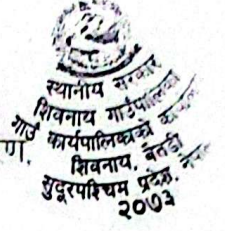 स्थानीय सरकार
शिवनाथ गाउँपालिका
गाउँ कार्यपालिकाको
ण.
शिवनाथ, बैतडी
सुदूरपश्चिम प्रदेश, नेपाल
२०७३